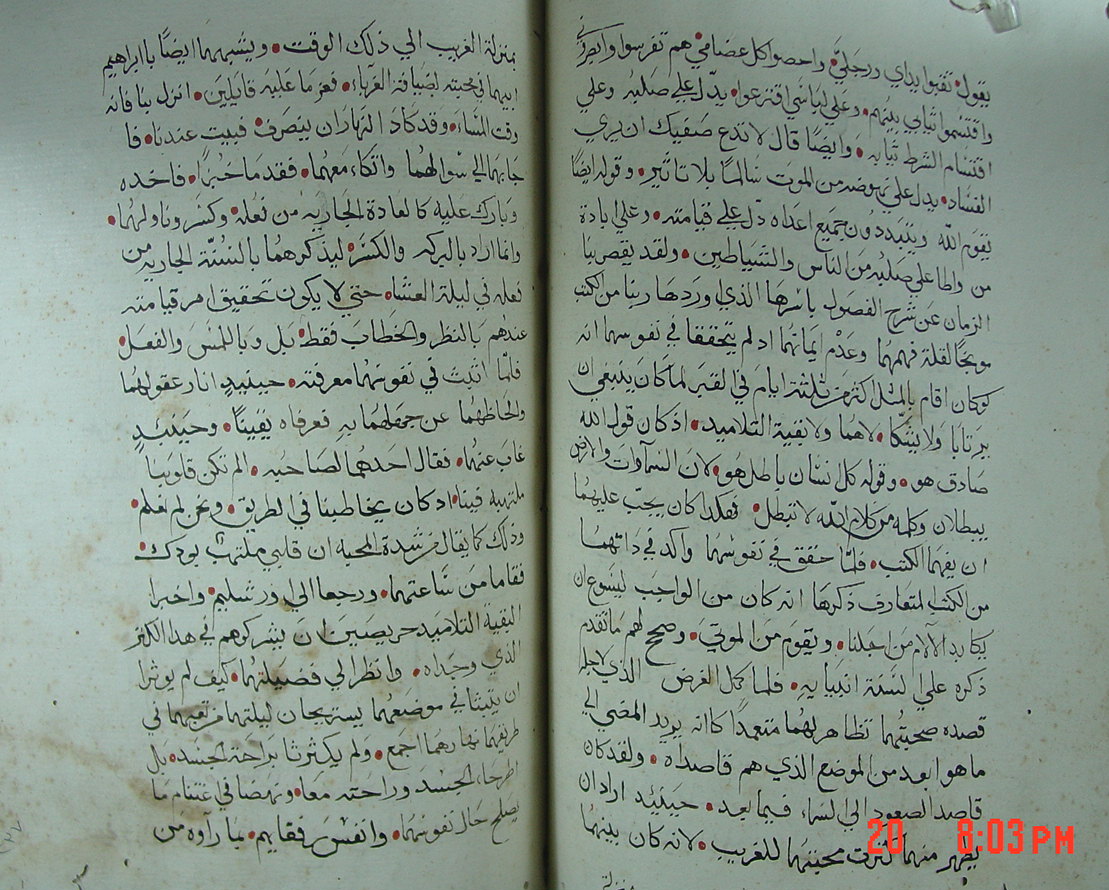 يقول • ثقبوا يداي ورجلي • واحصوا كل عضامي • هم تفرسوا وابصروني
واقتسموا ثيابي بينهم • وعلي لباسي اقترعوا • يدل علي صلبه وعلي
اقتسام الشرط ثيابه • وايضًا قال لا تدع صفيك ان يري
الفساد • يدل علي نهوضه من الموت سالمًا بلا تاثير • وقوله ايضًا
يقوم الله ويتبددون جميع اعداه دل علي قيامته • وعلي بادة
من واطا علي صلبه من الناس والشياطين • ولقد يقصر بنا
الزمان عن شرح الفصول باسرها الذي اوردها ربنا من الكتب
موبخًا لقلة فهمهما وعدم ايمانهما اد لم يتحققا في نفوسهما انه
لوكان اقام بالمثل اكثر من ثلثة ايام في القبر لما كان ينبغي ان
يرتابا ولا يشكا • لا هما ولا بقية التلاميد • اذ كان قول الله
صادق هو • وقوله كل نسان باطل هو • لان السماوات والارض
يبطلان وكلمه من كلام الله لا تبطل • فهكدا كان يجب عليهما
ان يفهما الكتب • فلما حقق في نفوسهما واكد في داتهما
من الكتب المتعارف ذكرها انه كان من الواجب ليسوع ان
يكابد الالام من اجلنا • ويقوم من الموتي • وصحح لهم ما تقدم
ذكره علي السنة انبيايه • فلما كمل الغرض الذي لاجله
قصده صحبتهما تظاهر لهما متعمدًا كانه يريد المضي الي
ما هو ابعد من الموضع الذي هم قاصداه • ولقد كان
قاصد الصعود الي السماء فيما بعد • حينيد اراد ان
يظهر منهما كثرت محبتهما للغريب • لانه كان بينهما
بمنزلة
بمنزلة الغريب الي ذلك الوقت • ويشبههما ايضًا باابراهيم
ابيهما في محبته لضيافة الغرباء • فعزما عليه قايلين • انزل بنا فانه
وقت المساء • وقد كاد النهار ان ينصرف • فيبيت عندنا • فا
جابهما الي سوالهما واتكاء معهما • فقدما خبزًا • فاخده
وبارك عليه كالعادة الجاريه من فعله • وكسر وناولهما •
وانما اراد بالبركه والكسر • ليذكرهما بالسنة الجاريه من
فعله في ليلة العشاء • حتي لا يكون تحقيق امر قيامته
عندهم بالنظر والخطاب فقط • بل وباللمس والفعل •
فلما اثبت في نفوسهما معرفته • حينيدٍ انار عقولهما
والحاظهما عن جهلهما به فعرفاه يقينًا • وحينيدٍ
غاب عنهما • فقال احدهما لصاحبه • الم تكن قلوبنا
ملتهبه فينا • ادكان يخاطبنا في الطريق • ونحن لم نعلم •
وذلك كما يقال من شدة المحبه ان قلبي ملتهب بودك •
فقاما من ساعتهما • ورجعا الي اورشليم • واخبرا
البقية التلاميد حريصين ان يشركوهم في هدا الكنز
الذي وجداه • وانظر الي فضيلتهما • كيف لم يوثرا
ان يبيتا في موضعهما يستريحان ليلتهما من تعبهما في
طريقهما نهارهما اجمع • ولم يكترثا براحة الجسد • بل
اطرحا الجسد وراحته معا • ونهضا في اغتنام ما
يصلح حال نفوسهما • وانفس رفقايهم • بما راوه من
20 8:03 PM